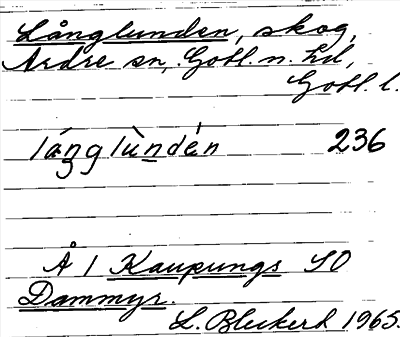 Långlunden, skog,
Ardre sn, Gotl. n. hd,
Gotl. l.
lánglùndén 236
Å 1 Kaupungs SO
Dammyr.
L. Bleckert 1965.